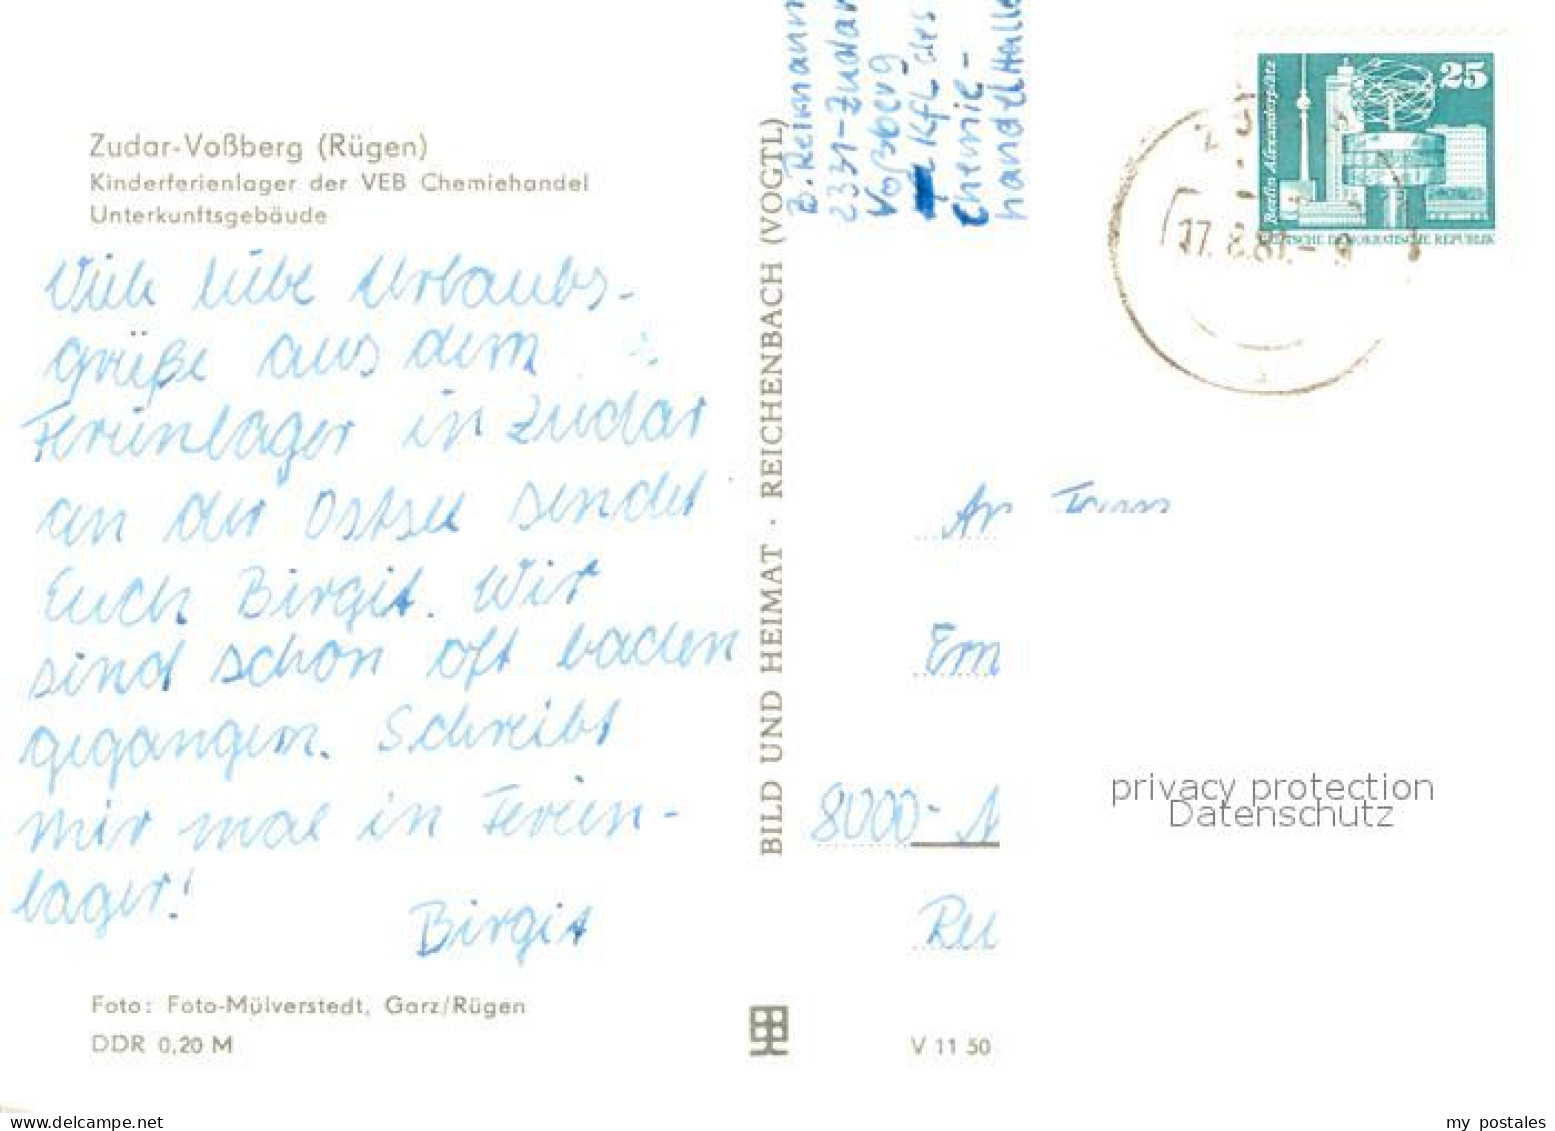 Zudar-Voßberg (Rügen)
Kinderferienlager der VEB Chemiehandel
Unterkunftsgebäude
Viele liebe Urlaubs-
grüße aus dem
Ferienlager in Zudar
an der Ostsee sendet
Euch Birgit. Wir
sind schon oft baden
gegangen. Schreibt
mir mal in Ferien-
lager!
Birgit
Foto: Foto-Mülverstedt, Garz/Rügen
DDR 0,20 M
BILD UND HEIMAT · REICHENBACH (VOGTL)
V 11 50
B. Reimann
2331-Zudar
Voßberg
KfL des
Chemie-
handel Halle
25
Berlin Alexanderplatz
DEUTSCHE DEMOKRATISCHE REPUBLIK
17. 8. 81
An Fam
8000-
privacy protection
Datenschutz
my postales